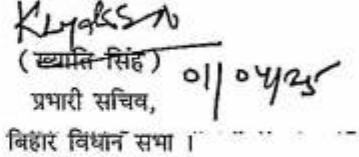 (ख्याति सिंह)
01/04/25
प्रभारी सचिव,
बिहार विधान सभा ।